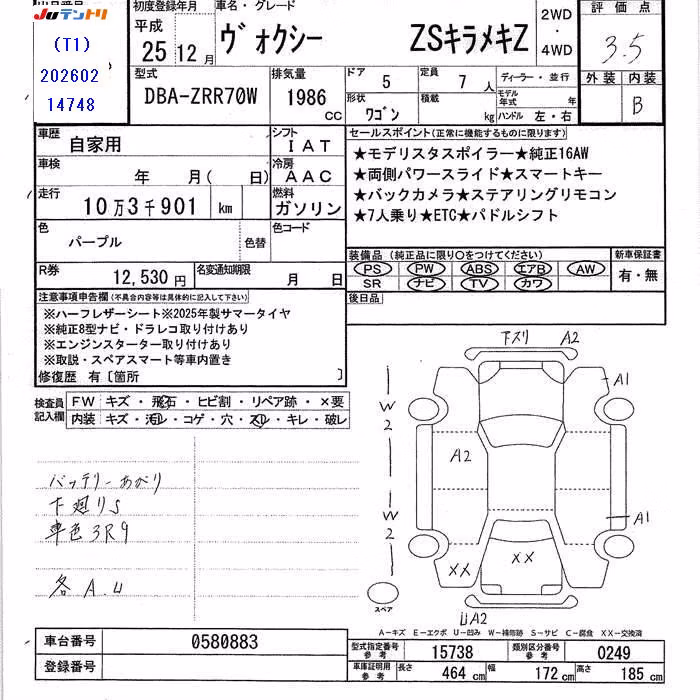 JUテントリ
(T1)
202602
14748
初度登録年月
車名・グレード
平成
25 12月
ヴォクシー ZSキラメキZ
2WD
・
4WD
評価点
3.5
外装 内装
B
型式
DBA-ZRR70W
排気量
1986 cc
ドア 5
形状 ワゴン
定員 7 人
積載 kg
ディーラー・並行
モデル年式 年
ハンドル 左・右
車歴 自家用
シフト IAT
車検 年 月( 日)
冷房 AAC
走行 10万3千901 km
燃料 ガソリン
色 パープル 色替
色コード
R券 12,530円
名変通知期限 月 日
セールスポイント(正常に機能するものに限ります)
★モデリスタスポイラー★純正16AW
★両側パワースライド★スマートキー
★バックカメラ★ステアリングリモコン
★7人乗り★ETC★パドルシフト
装備品 (純正品に限り○をつけてください)
PS PW ABS エアB AW
SR ナビ TV カワ
新車保証書
有・無
後日品
注意事項申告欄(不具合内容等は具体的に記入して下さい)
※ハーフレザーシート※2025年製サマータイヤ
※純正8型ナビ・ドラレコ取り付けあり
※エンジンスターター取り付けあり
※取説・スペアスマート等車内置き
修復歴 有〔箇所 〕
検査員記入欄
FW キズ・飛石・ヒビ割・リペア跡・×要
内装 キズ・汚れ・コゲ・穴・スレ・キレ・破レ
バッテリーあがり
下廻りS
車色3R9
各A.U
下スリ A2
A1
W2
A2
W2
A1
XX
XX
スペア
UA2
A－キズ E－エクボ U－凹み W－補修跡 S－サビ C－腐食 XX－交換済
車台番号 0580883
登録番号
型式指定番号 参考 15738
類別区分番号 参考 0249
車庫証明用 参考 長さ 464 cm 幅 172 cm 高さ 185 cm